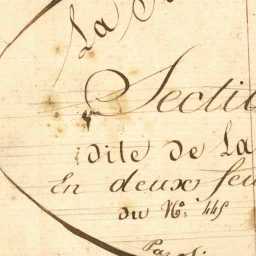 La
Sectio
dite de La
En deux feu
du N° 445